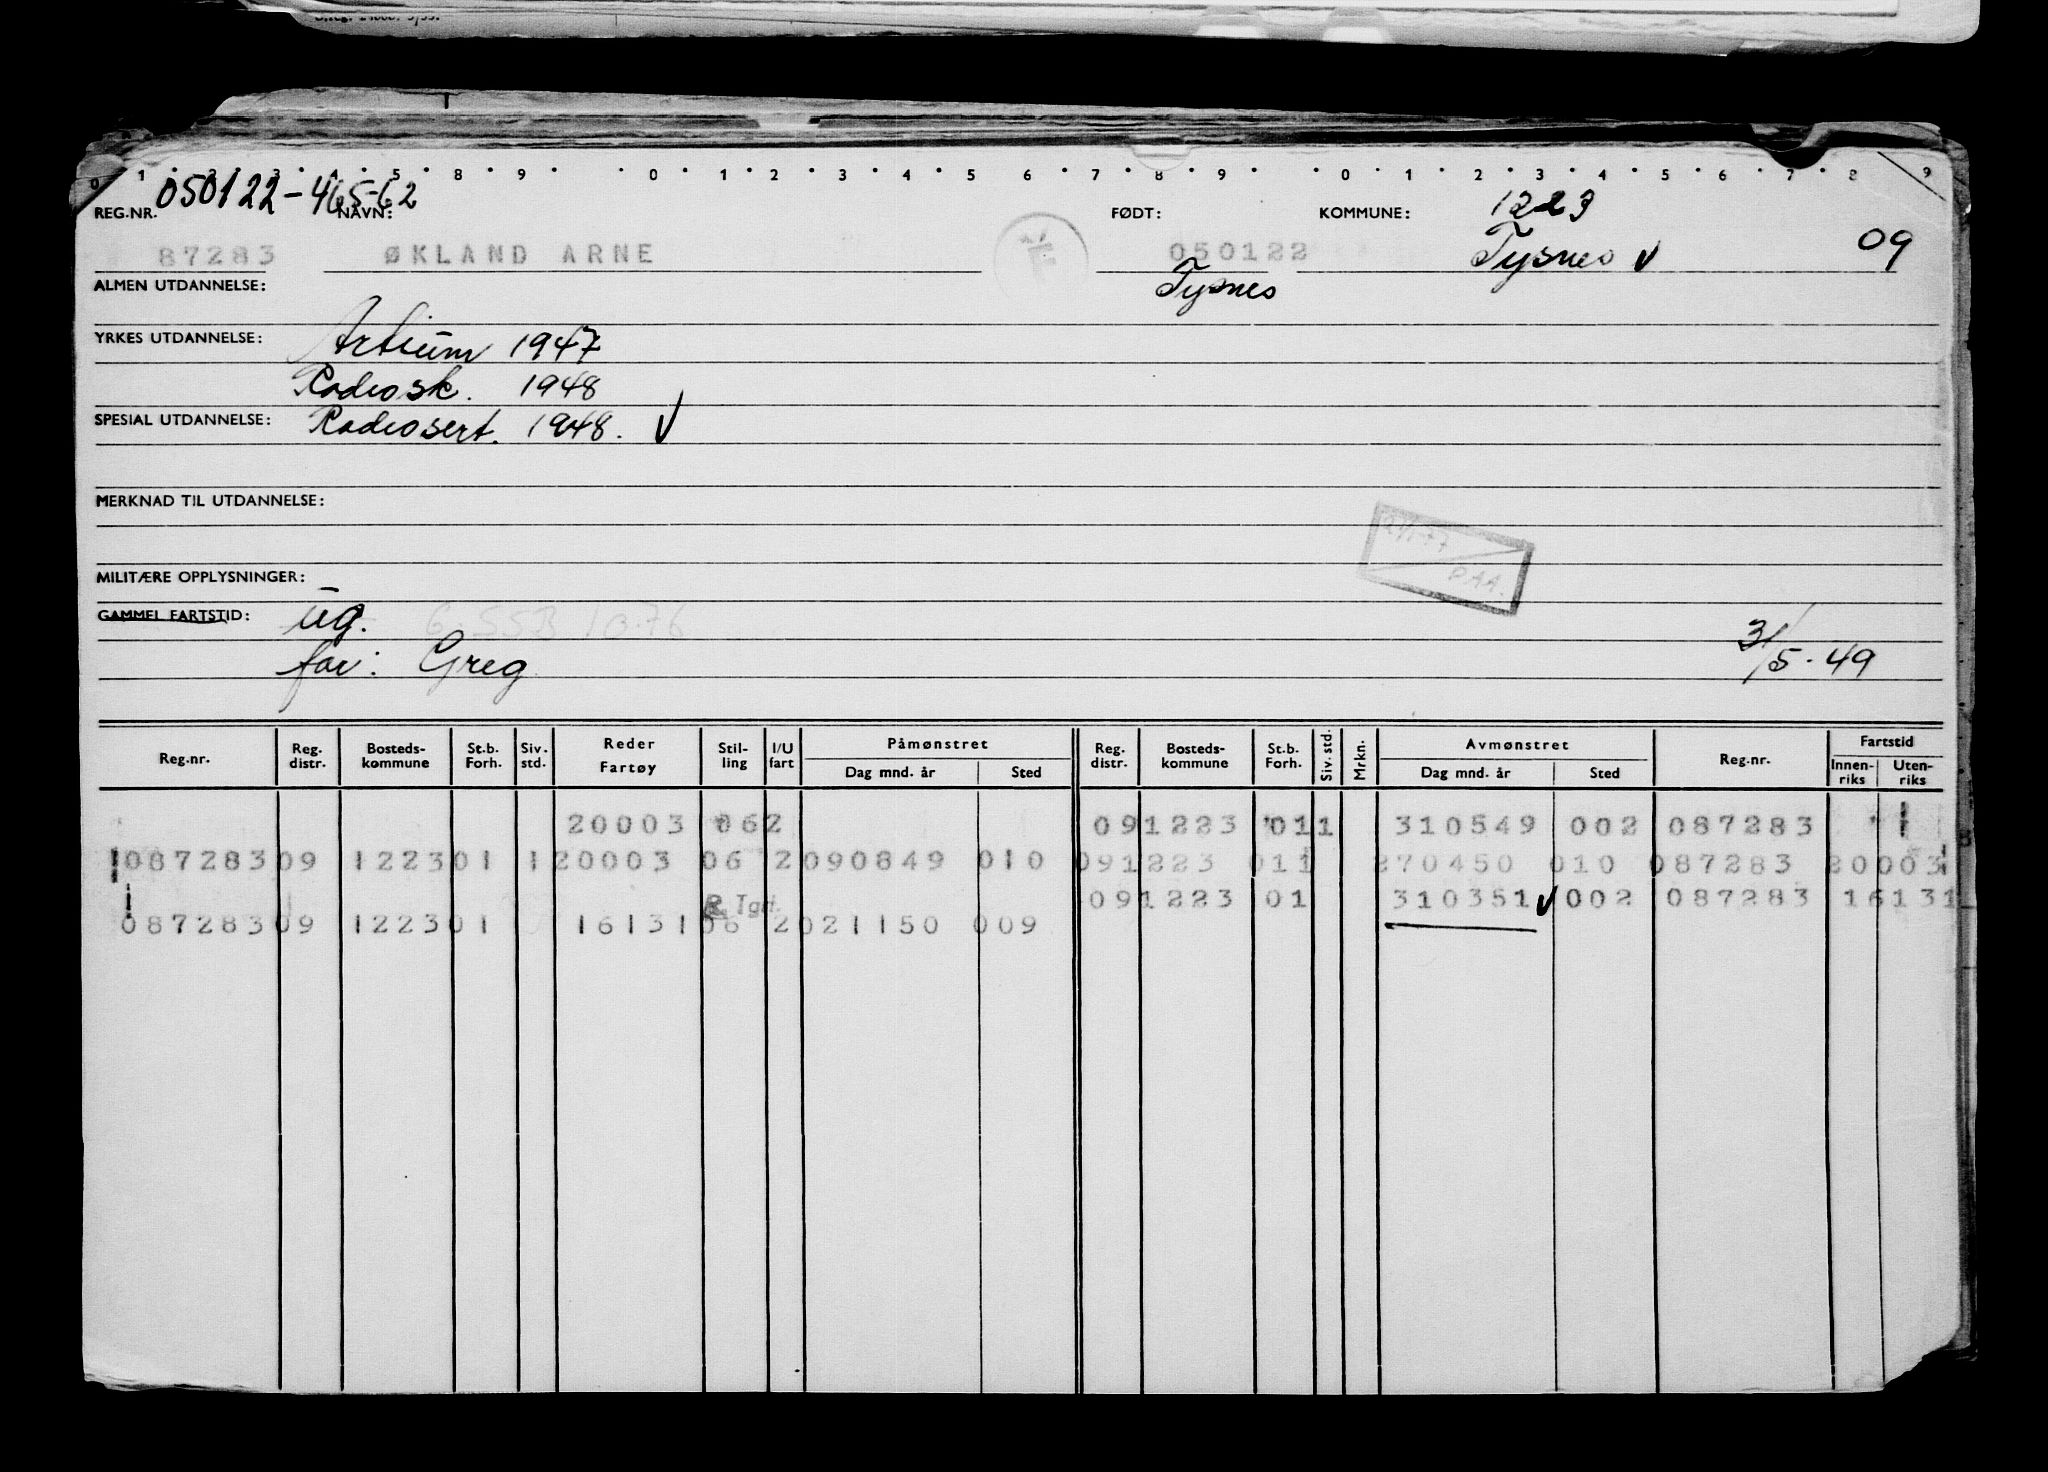 0 1 2 3 4 5 8 9 0 1 2 3 4 5 6 7 8 9 0 1 2 3 4 5 6 7 8 9
050122-465-62
REG.NR. NAVN: FØDT: KOMMUNE: 1223
87283 ØKLAND ARNE 050122 Tysnes 09
Tysnes
ALMEN UTDANNELSE:
YRKES UTDANNELSE: Artium 1947
Radiosk. 1948
SPESIAL UTDANNELSE: Radiosert. 1948.
MERKNAD TIL UTDANNELSE:
MILITÆRE OPPLYSNINGER:
GAMMEL FARTSTID: ug.
far: Greg 31/5-49
Reg.nr. Reg. distr. Bosteds- kommune St.b. Forh. Siv. std. Reder Fartøy Stil- ling I/U fart Påmønstret Dag mnd. år Sted Reg. distr. Bosteds- kommune St.b. Forh. Siv. std. Mrkn. Avmønstret Dag mnd. år Sted Reg.nr. Fartstid Innen- riks Uten- riks
20003 062 091223 011 310549 002 087283
087283 09 1223 01 1 20003 06 2 090849 010 091223 011 270450 010 087283 20003
091223 01 310351 002 087283 16131
R. Tgr.
087283 09 1223 01 16131 06 2 021150 009